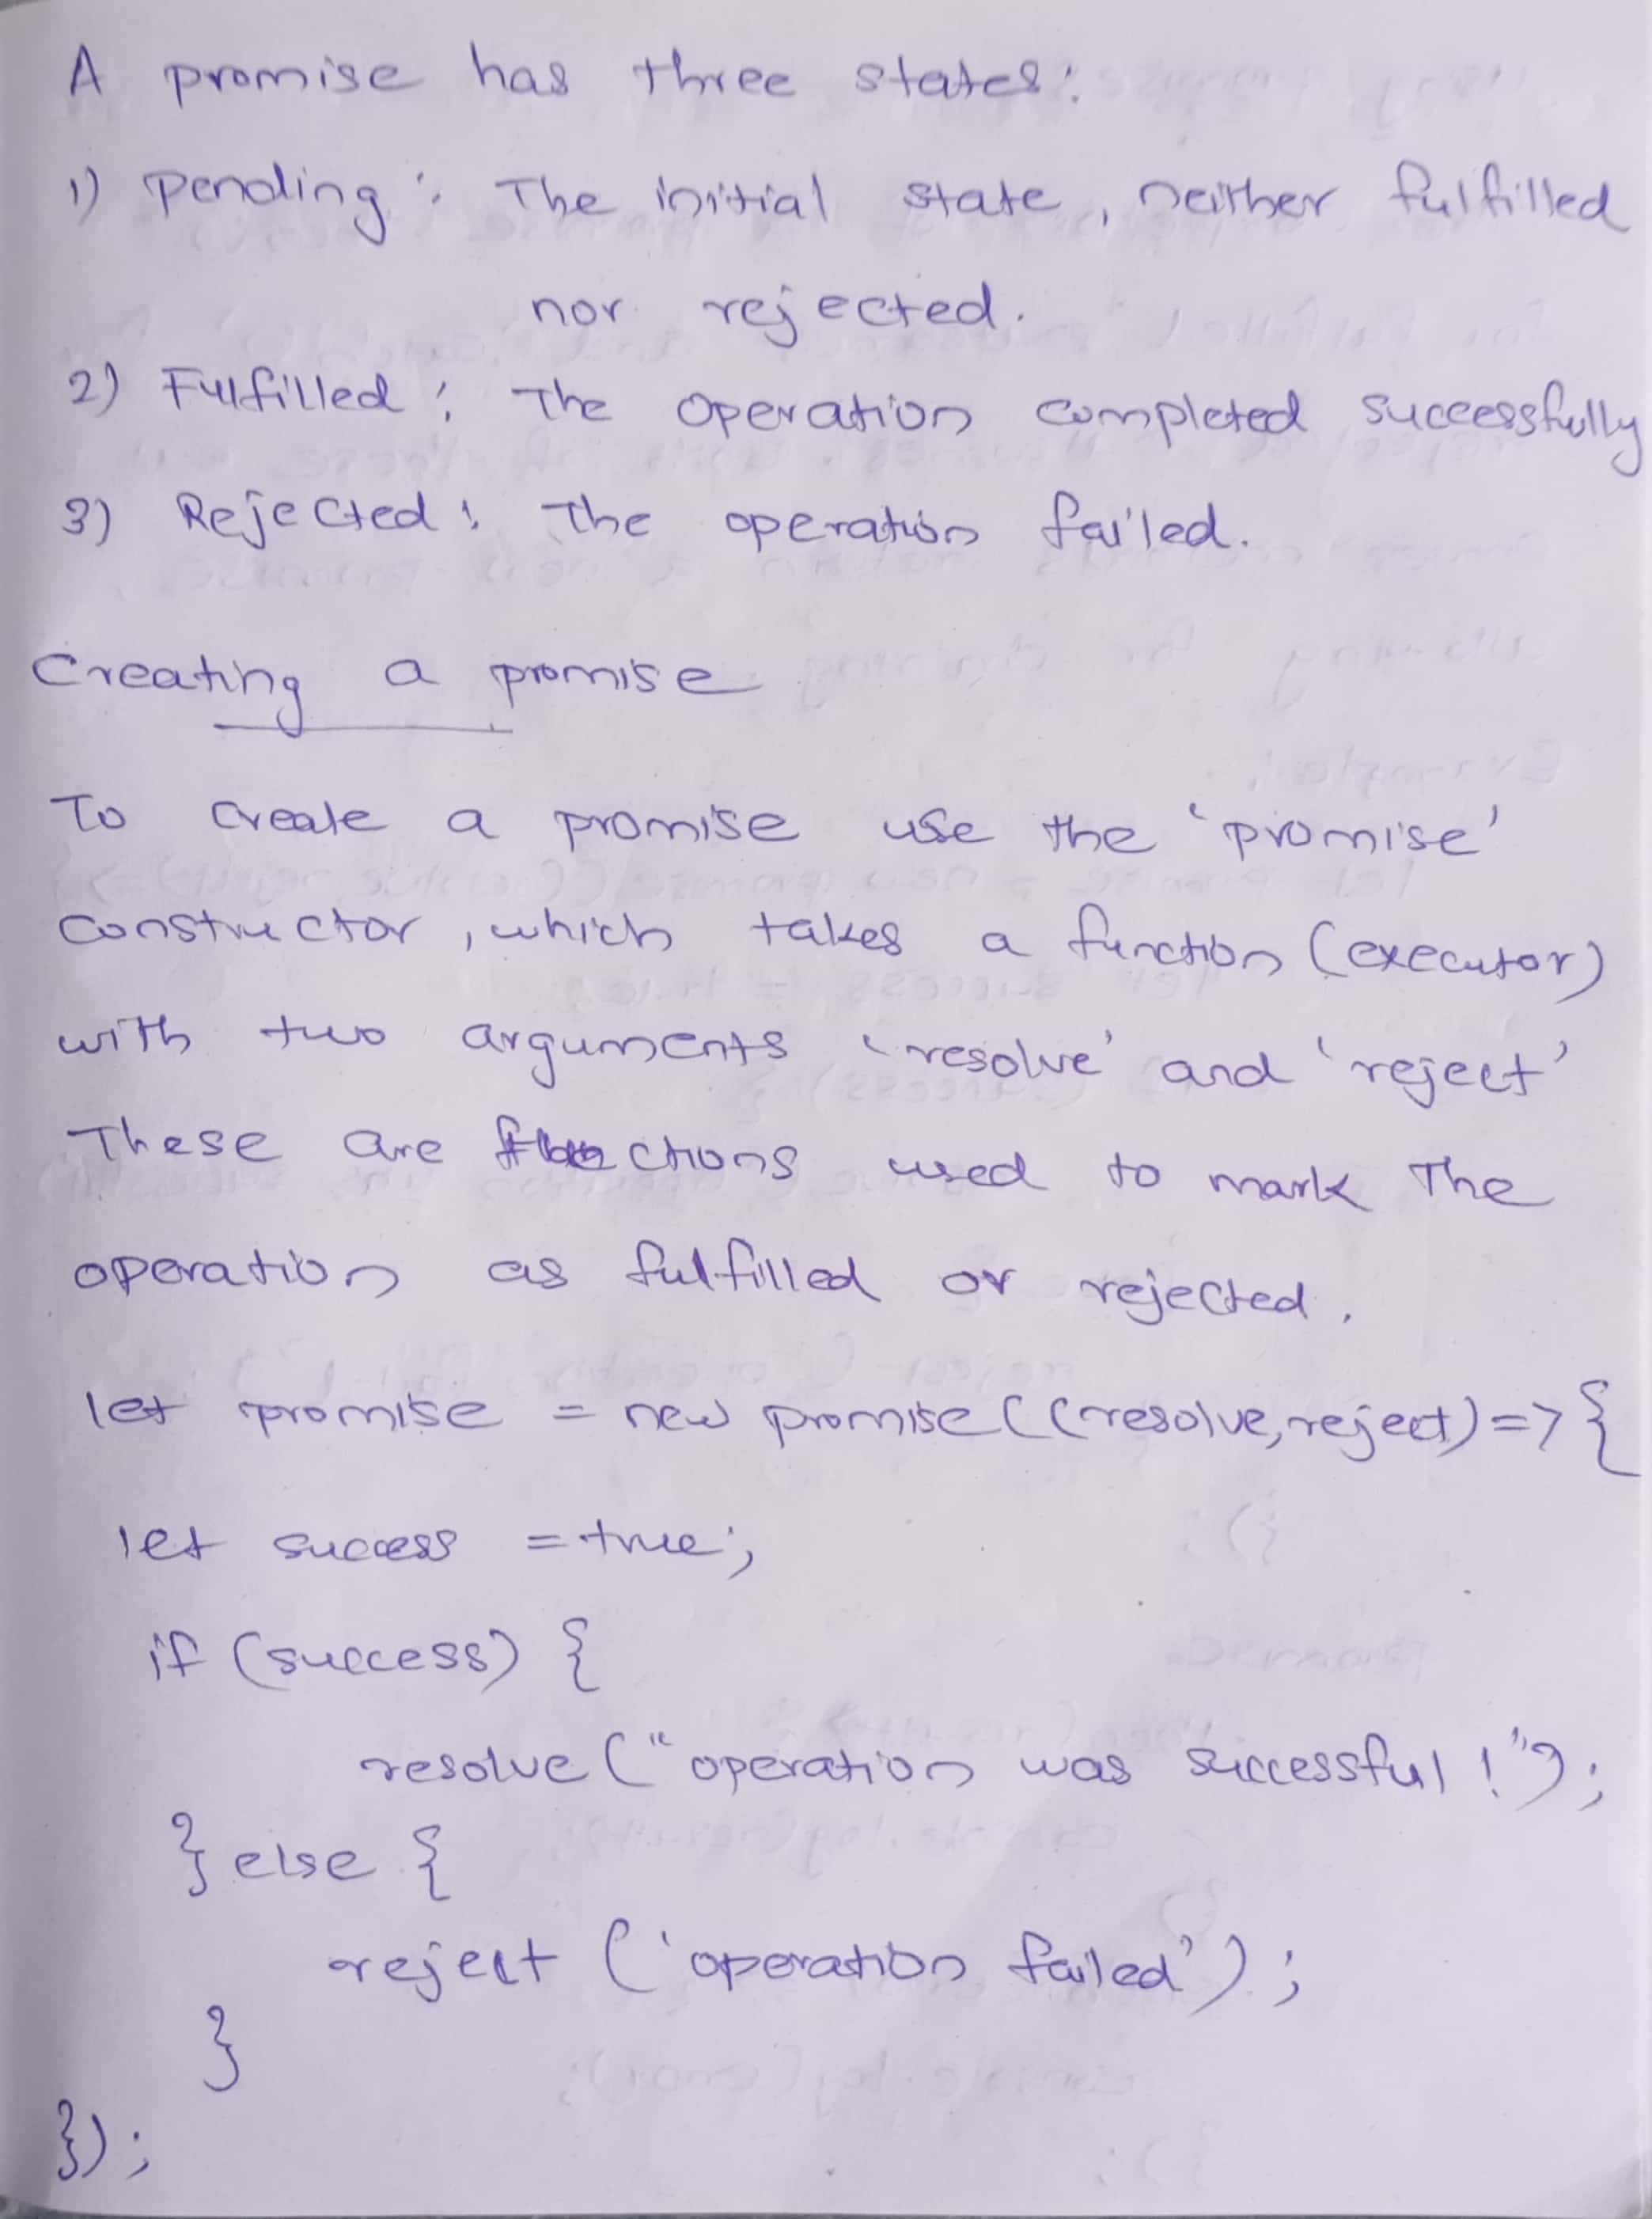 A promise has three states:
1) Pending : The initial state, neither fulfilled
nor rejected.
2) Fulfilled : The operation completed successfully
3) Rejected : The operation failed.
Creating a promise
To create a promise use the 'promise'
constructor, which takes a function (executor)
with two arguments 'resolve' and 'reject'
These are functions used to mark The
operation as fulfilled or rejected.
let promise = new promise((resolve, reject) => {
let success = true;
if (success) {
resolve ("operation was successful!");
} else {
reject ('operation failed');
}
});